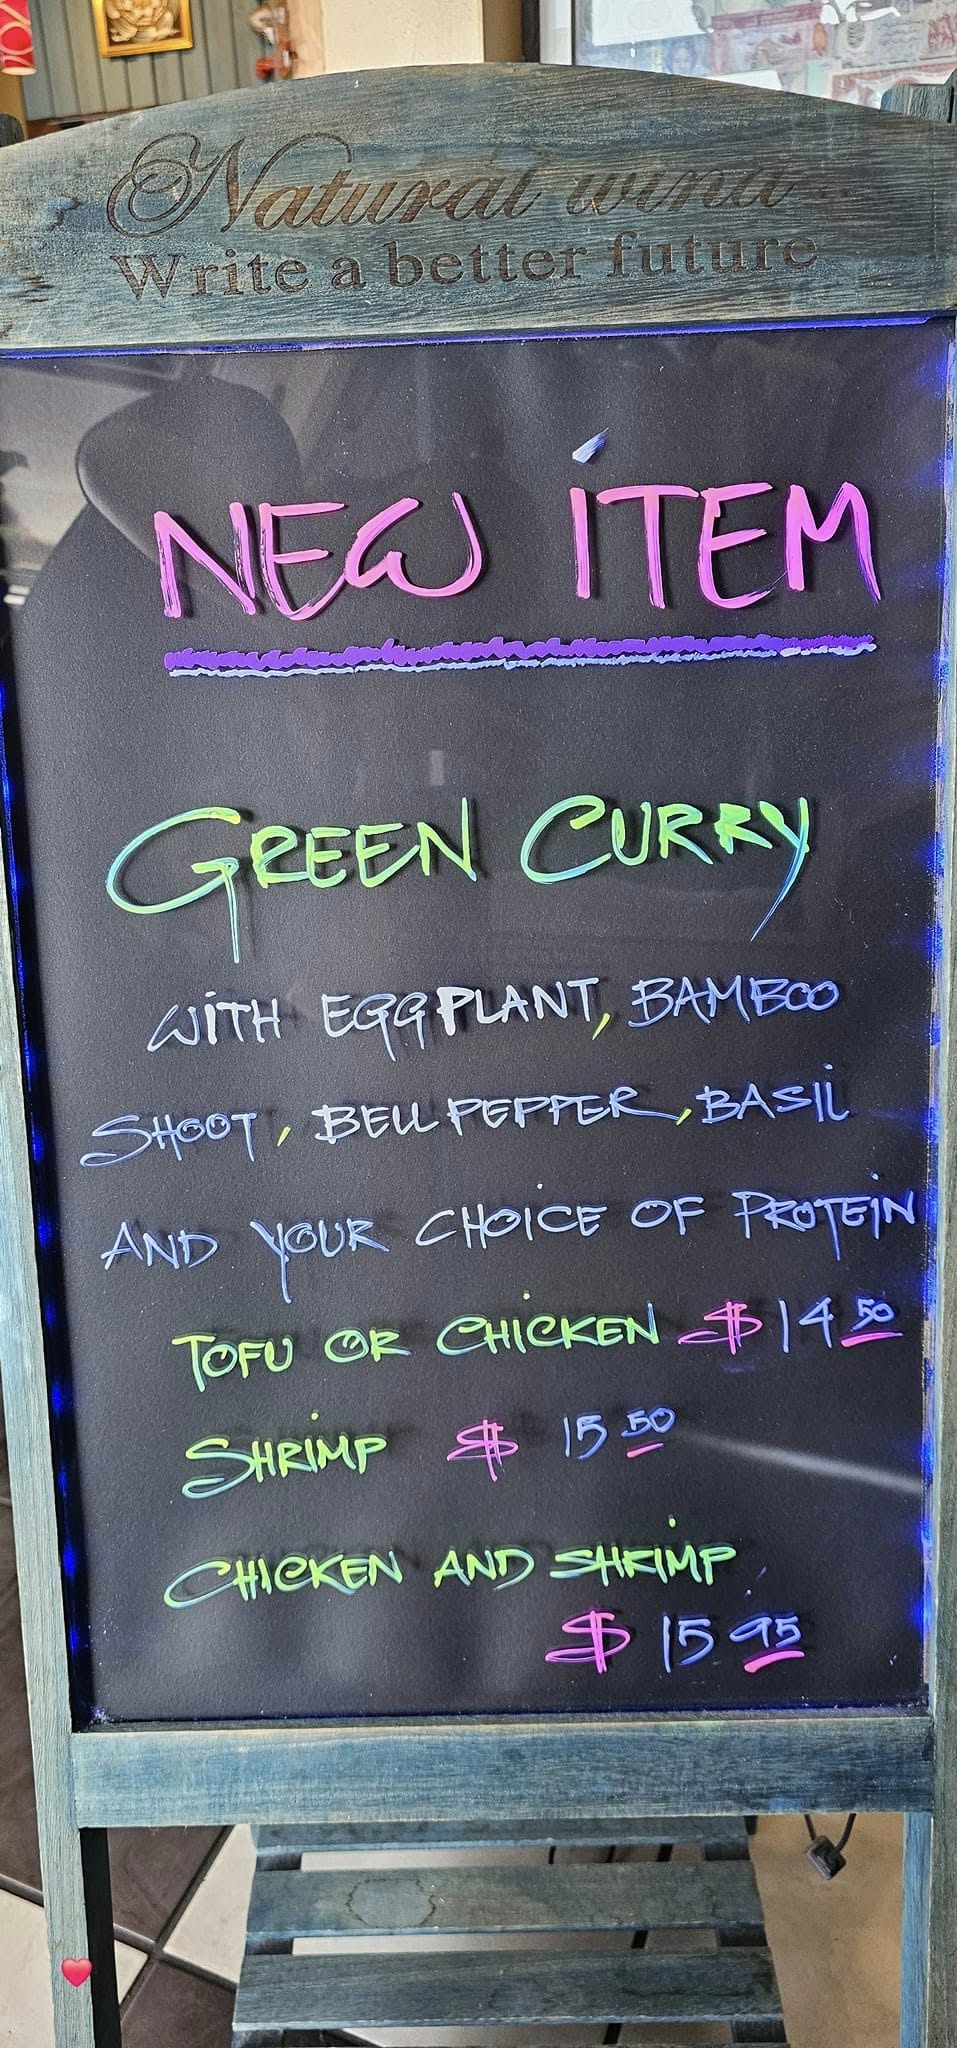 Natural wind
Write a better future
NEW ITEM
GREEN CURRY
WITH EGGPLANT, BAMBOO
SHOOT, BELL PEPPER, BASIL
AND YOUR CHOICE OF PROTEIN
TOFU OR CHICKEN $ 14 50
SHRIMP $ 15 50
CHICKEN AND SHRIMP
$ 15 95